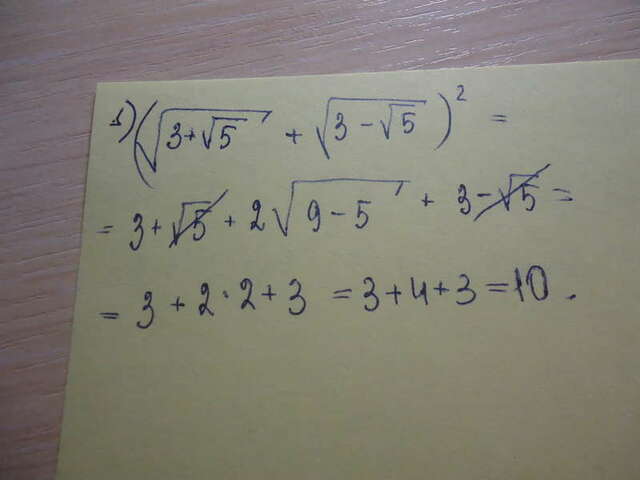 1) (√(3+√5) + √(3-√5))² =
= 3+√5 + 2√(9-5) + 3-√5 =
= 3 + 2·2+3 = 3+4+3=10.